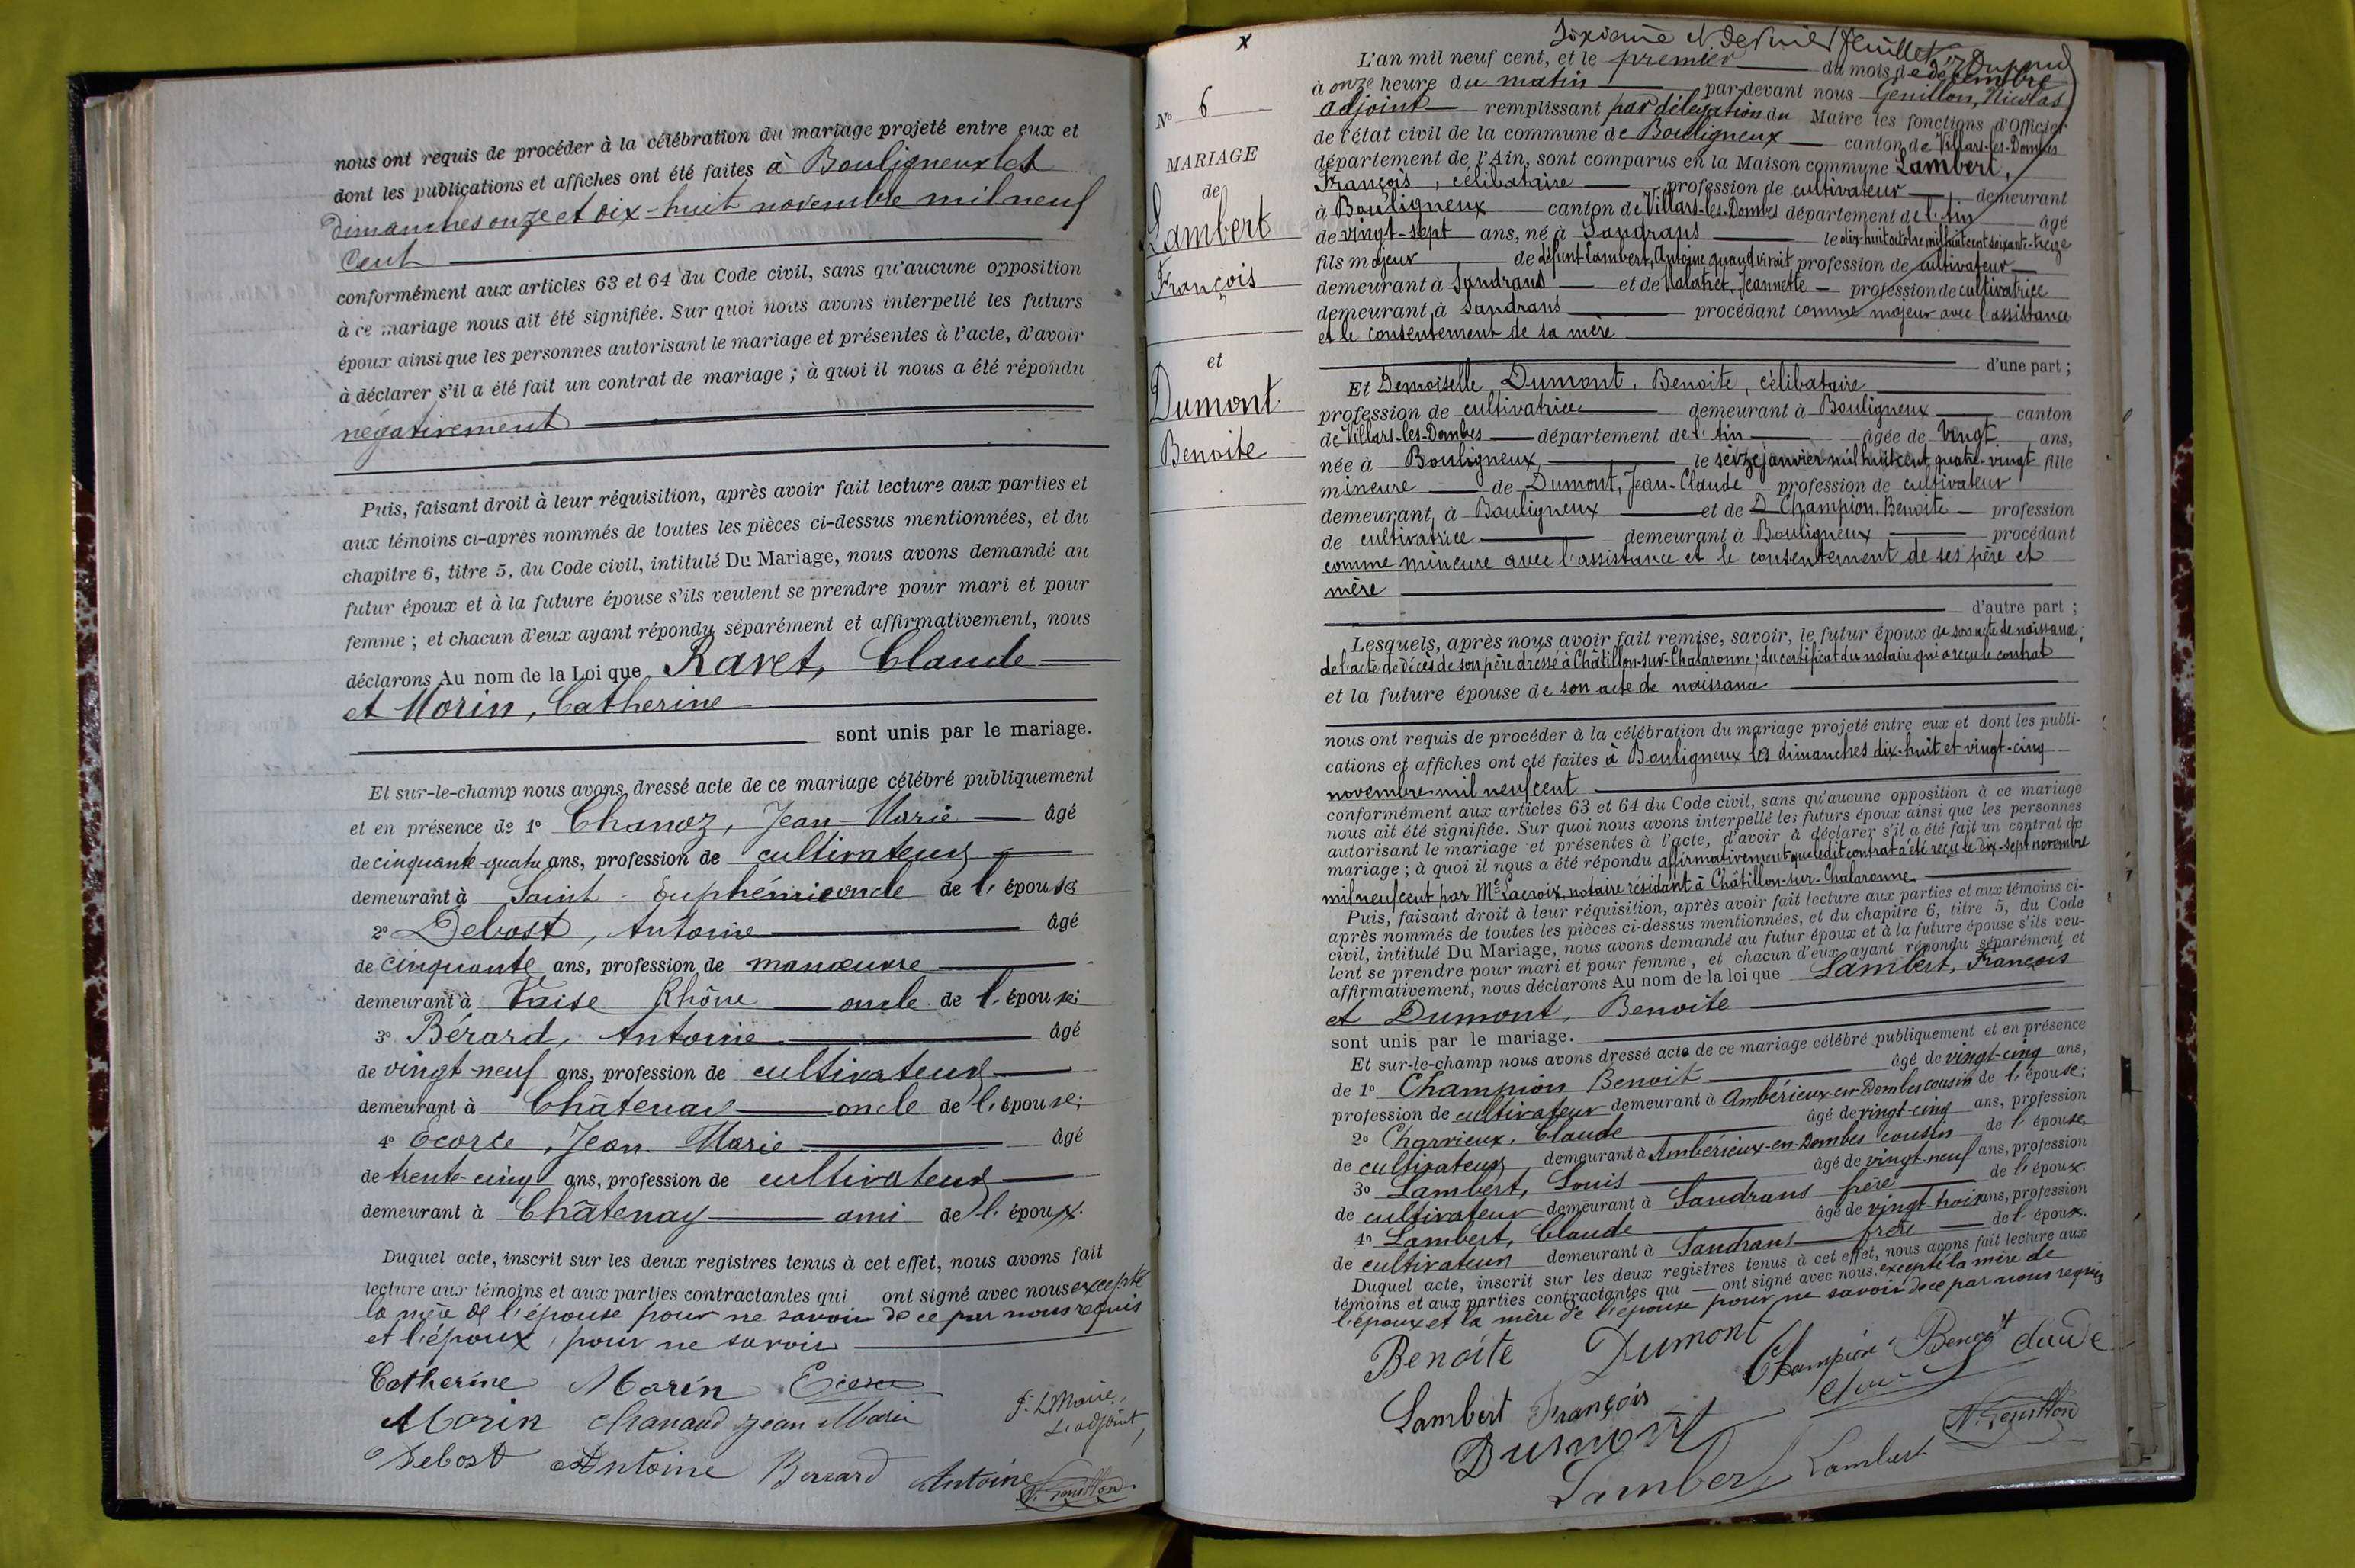 nous ont requis de procéder à la célébration du mariage projeté entre eux et
dont les publications et affiches ont été faites à Bouligneux les
dimanches onze et dix-huit novembre mil neuf
cent
conformément aux articles 63 et 64 du Code civil, sans qu'aucune opposition
à ce mariage nous ait été signifiée. Sur quoi nous avons interpellé les futurs
époux ainsi que les personnes autorisant le mariage et présentes à l'acte, d'avoir
à déclarer s'il a été fait un contrat de mariage ; à quoi il nous a été répondu
négativement
Puis, faisant droit à leur réquisition, après avoir fait lecture aux parties et
aux témoins ci-après nommés de toutes les pièces ci-dessus mentionnées, et du
chapitre 6, titre 5, du Code civil, intitulé Du Mariage, nous avons demandé au
futur époux et à la future épouse s'ils veulent se prendre pour mari et pour
femme ; et chacun d'eux ayant répondu séparément et affirmativement, nous
déclarons Au nom de la Loi que Ravet, Claude
et Morin, Catherine
sont unis par le mariage.
Et sur-le-champ nous avons dressé acte de ce mariage célébré publiquement
et en présence de 1º Chanoz, Jean-Marie âgé
de cinquante-quatre ans, profession de cultivateur
demeurant à Saint-Euphémie oncle de l'épouse
2º Debost, Antoine âgé
de cinquante ans, profession de manœuvre
demeurant à Vaise Rhône oncle de l'épouse;
3º Bérard, Antoine âgé
de vingt-neuf ans, profession de cultivateur
demeurant à Châtenay oncle de l'épouse;
4º Ecorce, Jean-Marie âgé
de trente-cinq ans, profession de cultivateur
demeurant à Châtenay ami de l'époux.
Duquel acte, inscrit sur les deux registres tenus à cet effet, nous avons fait
lecture aux témoins et aux parties contractantes qui ont signé avec nous excepté
la mère de l'épouse pour ne savoir de ce par nous requis
et l'époux pour ne savoir
Catherine Morin Ecorce
Morin Chanaud Jean Marie
P. L Maire,
L'adjoint,
Debost Antoine Berrard Antoine
N. Genillon
Sixième et dernier feuillet
x
Nº 6
MARIAGE
de
Lambert
François
et
Dumont
Benoite
L'an mil neuf cent, et le premier du mois de décembre
à onze heure du matin par-devant nous Genillon, Nicolas
adjoint remplissant par délégation du Maire les fonctions d'Officier
de l'état civil de la commune de Bouligneux canton de Villars-les-Dombes
département de l'Ain, sont comparus en la Maison commune Lambert,
François, célibataire profession de cultivateur demeurant
à Bouligneux canton de Villars-les-Dombes département de l'Ain âgé
de vingt-sept ans, né à Sandrans le dix-huit octobre mil huit cent soixante-treize
fils majeur de défunt Lambert, Antoine quand vivait profession de cultivateur
demeurant à Sandrans et de Malatret, Jeannette profession de cultivatrice
demeurant à Sandrans procédant comme majeur avec l'assistance
et le consentement de sa mère
d'une part ;
Et Demoiselle Dumont, Benoite, célibataire
profession de cultivatrice demeurant à Bouligneux canton
de Villars-les-Dombes département de l'Ain âgée de vingt ans,
née à Bouligneux le seize janvier mil huit cent quatre-vingt fille
mineure de Dumont, Jean-Claude profession de cultivateur
demeurant à Bouligneux et de D Champion Benoite profession
de cultivatrice demeurant à Bouligneux procédant
comme mineure avec l'assistance et le consentement de ses père et
mère
d'autre part ;
Lesquels, après nous avoir fait remise, savoir, le futur époux de son acte de naissance;
de l'acte de décès de son père dressé à Châtillon-sur-Chalaronne; du certificat du notaire qui a reçu le contrat
et la future épouse de son acte de naissance
nous ont requis de procéder à la célébration du mariage projeté entre eux et dont les publi-
cations et affiches ont été faites à Bouligneux les dimanches dix-huit et vingt-cinq
novembre mil neuf cent
conformément aux articles 63 et 64 du Code civil, sans qu'aucune opposition à ce mariage
nous ait été signifiée. Sur quoi nous avons interpellé les futurs époux ainsi que les personnes
autorisant le mariage et présentes à l'acte, d'avoir à déclarer s'il a été fait un contrat de
mariage ; à quoi il nous a été répondu affirmativement que ledit contrat a été reçu le dix-sept novembre
mil neuf cent par Me Lacroix, notaire résidant à Châtillon-sur-Chalaronne
Puis, faisant droit à leur réquisition, après avoir fait lecture aux parties et aux témoins ci-
après nommés de toutes les pièces ci-dessus mentionnées, et du chapitre 6, titre 5, du Code
civil, intitulé Du Mariage, nous avons demandé au futur époux et à la future épouse s'ils veu-
lent se prendre pour mari et pour femme, et chacun d'eux ayant répondu séparément et
affirmativement, nous déclarons Au nom de la loi que Lambert, François
et Dumont, Benoite
sont unis par le mariage.
Et sur-le-champ nous avons dressé acte de ce mariage célébré publiquement et en présence
de 1º Champion Benoit âgé de vingt-cinq ans,
profession de cultivateur demeurant à Ambérieux-en-Dombes cousin de l'épouse;
2º Charvieux, Claude âgé de vingt-cinq ans, profession
de cultivateur demeurant à Ambérieux-en-Dombes cousin de l'épouse,
3º Lambert, Louis âgé de vingt-neuf ans, profession
de cultivateur demeurant à Sandrans frère de l'époux.
4º Lambert, Claude âgé de vingt-trois ans, profession
de cultivateur demeurant à Sandrans frère de l'époux.
Duquel acte, inscrit sur les deux registres tenus à cet effet, nous avons fait lecture aux
témoins et aux parties contractantes qui ont signé avec nous. excepté la mère de
l'époux et la mère de l'épouse pour ne savoir de ce par nous requis
Benoite Dumont Champion Benoit
Lambert François
Dumont N. Genillon
Lambert Lambert